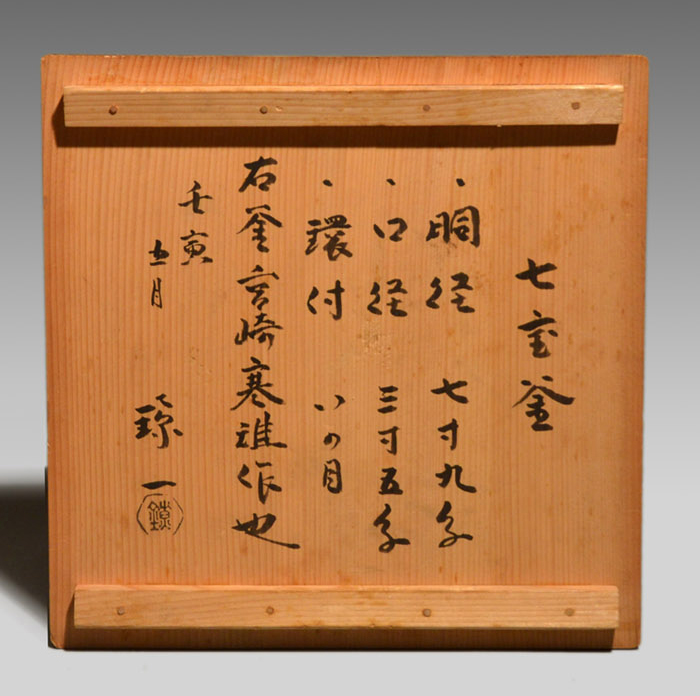 七宝釜
・胴径 七寸九分
・口径 三寸五分
・環付 いの目
右釜宮崎寒雉作也
壬寅
五月